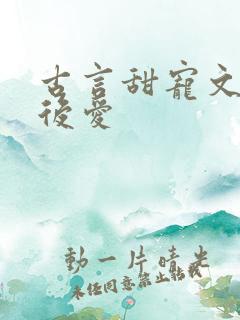 古言甜寵文
後愛
動一片晴光
未經同意禁止轉載